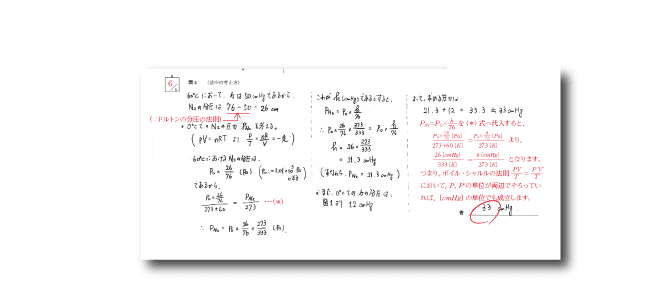 6
問4 (途中の考え方)
60℃において, Aは50cmHgであるから,
N₂の分圧は 76 - 50 = 26 cm
(∵ドルトンの分圧の法則)
0℃でのN₂の圧力 P_N₂ を考える。
( PV = nRT より P/T = nR/V = 一定.)
60℃におけるN₂の分圧は,
P₀ × 26/76 (Pa)
であるから,
P₀ × 26/76 / 273+60 = P_N₂ / 273 …(*)
∴ P_N₂ = P₀ × 26/76 × 273/333 (Pa).
これが h (cmHg) であるとすると,
P_N₂ = P₀ × h/76
∴ P₀ × 26/76 × 273/333 = P₀ × h/76
h = 26 × 273/333
= 21.3 cmHg
(すなわち, P_N₂ = 21.3 cmHg)
また, 0℃でのAの分圧は,
図1より 12 cmHg
よって, 求める圧力は
21.3 + 12 = 33.3 ≒ 33 cmHg
P_N₂=P₀×h/76 を (*) 式へ代入すると,
P₀×26/76 [Pa] / 273+60 [K] = P₀×h/76 [Pa] / 273 [K] より,
26 [cmHg] / 333 [K] = h [cmHg] / 273 [K] となります。
つまり, ボイル・シャルルの法則 PV/T = P'V'/T'
において, P, P'の単位が両辺でそろってい
れば, (cmHg) の単位でも成立します。
答 33 cmHg.